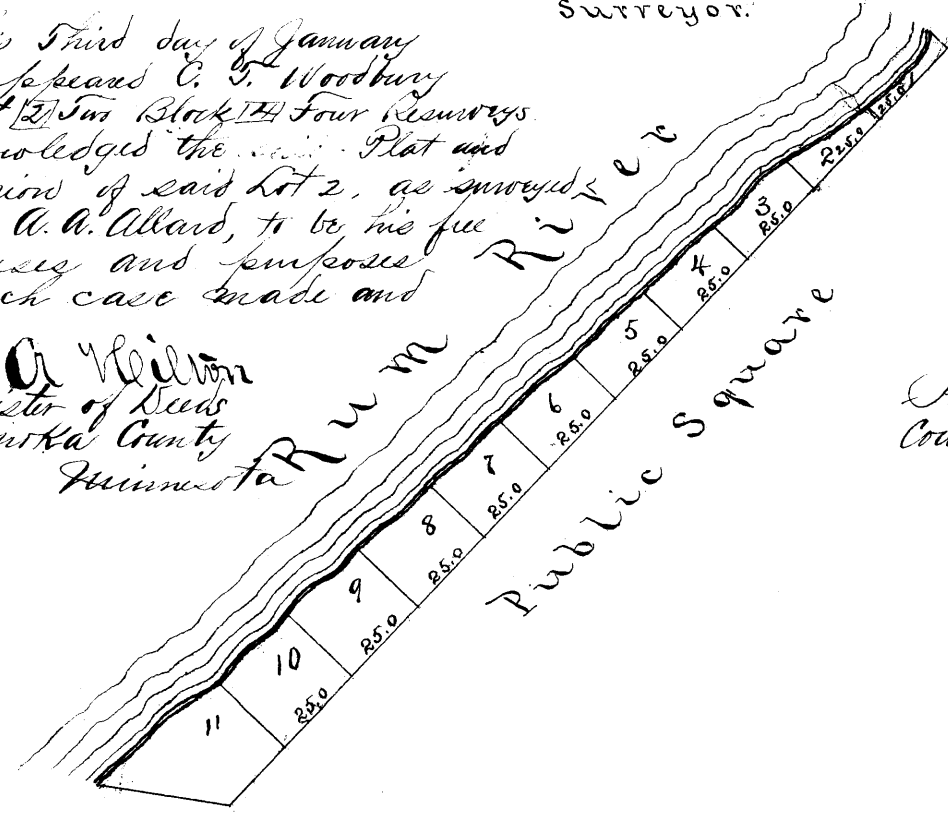 Surveyor.
Third day of January
ppeared C. T. Woodbury
[2] Two Block [4] Four Resurveys
wledged the Plat and
sion of said Lot 2, as surveyed
A. A. Allard, to be his free
ses and purposes
ch case made and
A Hilton
ister of Deeds
noka County
Minnesota
Rum River
Public Square
Cou
1
25.0
2
25.0
3
25.0
4
25.0
5
25.0
6
25.0
7
25.0
8
25.0
9
25.0
10
25.0
11